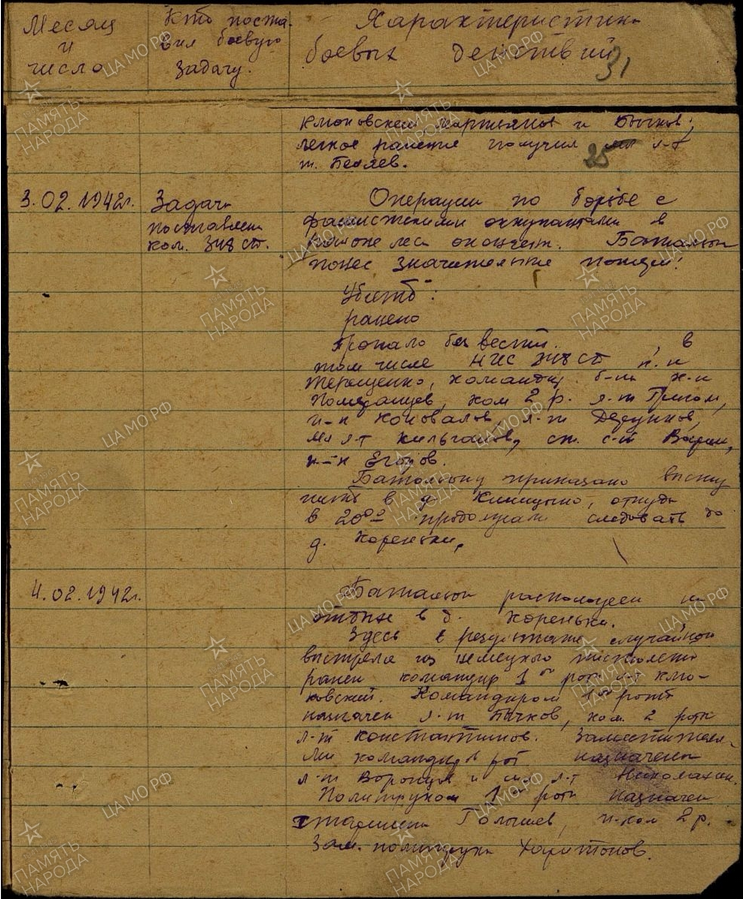 Месяц и число
Кто поста-
вил боевую
задачу.
Характеристика
боевых действий
31
Клюковский, и Бычков;
легкое ранение получил л-т
25
т. Беляев.
3.02.1942г.
Задача
поставлена
ком. 348 СП.
Операция по борьбе с
фашистскими оккупантами в
районе леса окончен. Батальон
понес значительные потери:
Убито:
ранено
пропало без вести. , в
том числе НШ 348 СП к-н
Терещенко, командир б-на к-н
Помазанцев, ком 2 р. л-т
п-к Коновалов, л-т
мл л-т Кильганов, ст. с-т
п-к Егоров.
Батальону приказано высту
пить в д. , откуда
в 20⁰⁰ продолжали следовать до
д. Кореньки.
4.02.1942г.
Батальон расположен на
отдых в д. Кореньки.
Здесь в результате случайного
выстрела из немецкого пистолета
ранен командир 1ой роты л-т Клю-
ковский. Командиром 1ой роты
назначен л-т Бычков, ком. 2 роты
л-т Константинов. Заместителя-
ми командиров рот назначены
л-т и мл л-т
Политруком 1ой роты назначен
старшина Голышев, п-ком 2 р.
Зам. политрука Харитонов.
ПАМЯТЬ НАРОДА
ЦА МО РФ